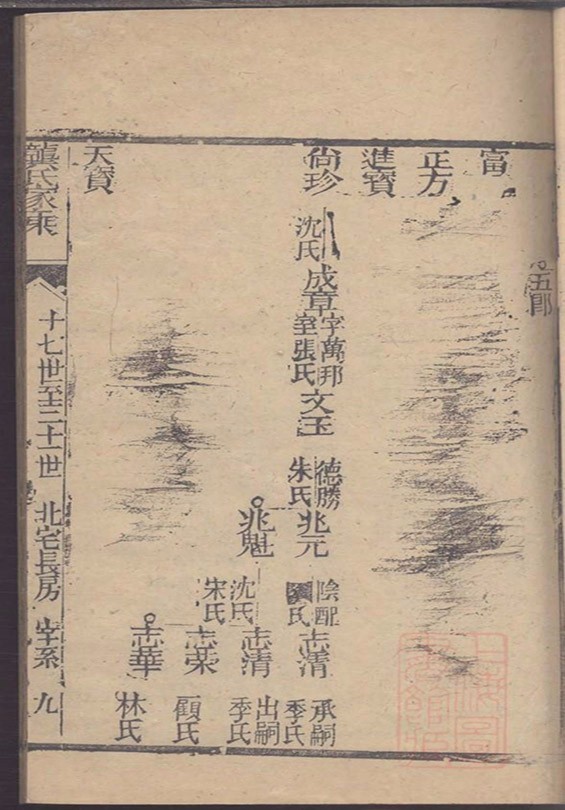 五郎
富
正方
進寶
尚珍
沈氏
成章
字萬邦
室張氏
文玉
德勝
朱氏
兆元
陰配
氏
志清
承嗣
季氏
兆魁
沈氏
宋氏
志清
出嗣
季氏
志榮
顧氏
志華
林氏
天寶
龔氏家乘
十七世至二十一世 北宅長房 系 九